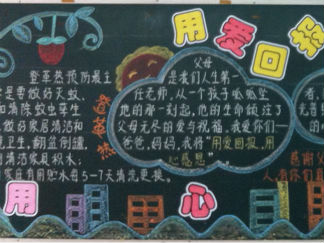 用爱回
登革热预防最主
是要做好灭蚊、
和清除蚊虫孳生
做好家居清洁和
卫生，翻盆倒罐，
清洁家具积水；
家庭有用贮水每5-7天清洗更换。
登革热
父母
是我们人生第一
任老师，从一个孩子呱呱坠
地的那一刻起，他的生命倾注了
父母无尽的爱与祝福。我爱你们——
爸爸，妈妈，我将“用爱回报，用
心感恩”。
者，
感谢父
人，
用
心